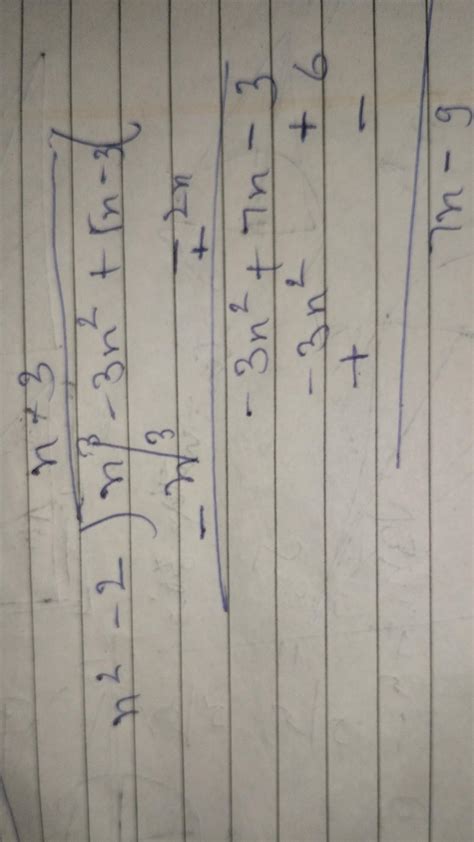 n - 3
n² - 2 ) n³ - 3n² + 5n - 3 (
n³ - 2n
- +
-3n² + 7n - 3
-3n² + 6
+ -
7n - 9